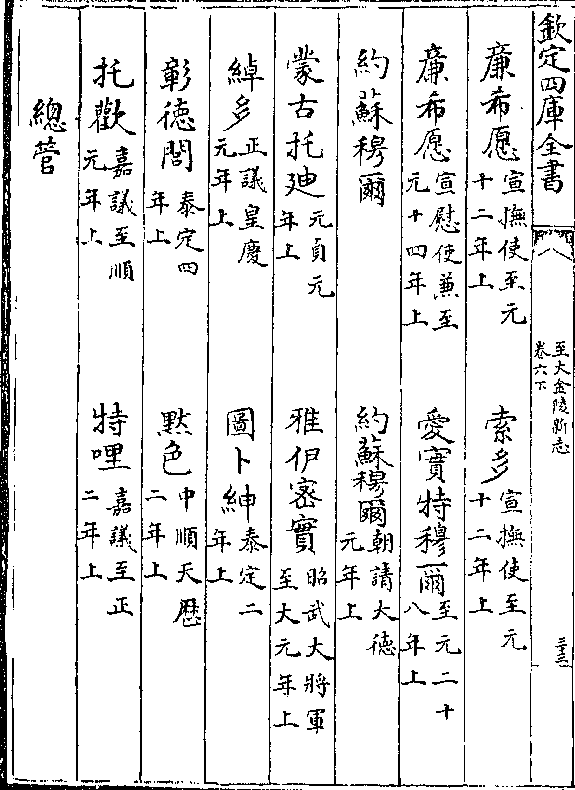 欽定四庫全書
至大金陵新志
卷六下
三三
廉希愿宣撫使至元十二年上
索多宣撫使至元十二年上
廉希愿宣慰使兼至元十四年上
愛實特穆爾至元二十八年上
約蘇穆爾
約蘇穆爾朝請大德元年上
蒙古托廸元貞元年上
雅伊密實昭武大將軍至大元年上
綽多正議皇慶元年上
圖卜紳泰定二年上
彰德閭泰定四年上
黙色中順天歷二年上
托歡嘉議至順元年上
特哩嘉議至正二年上
總管